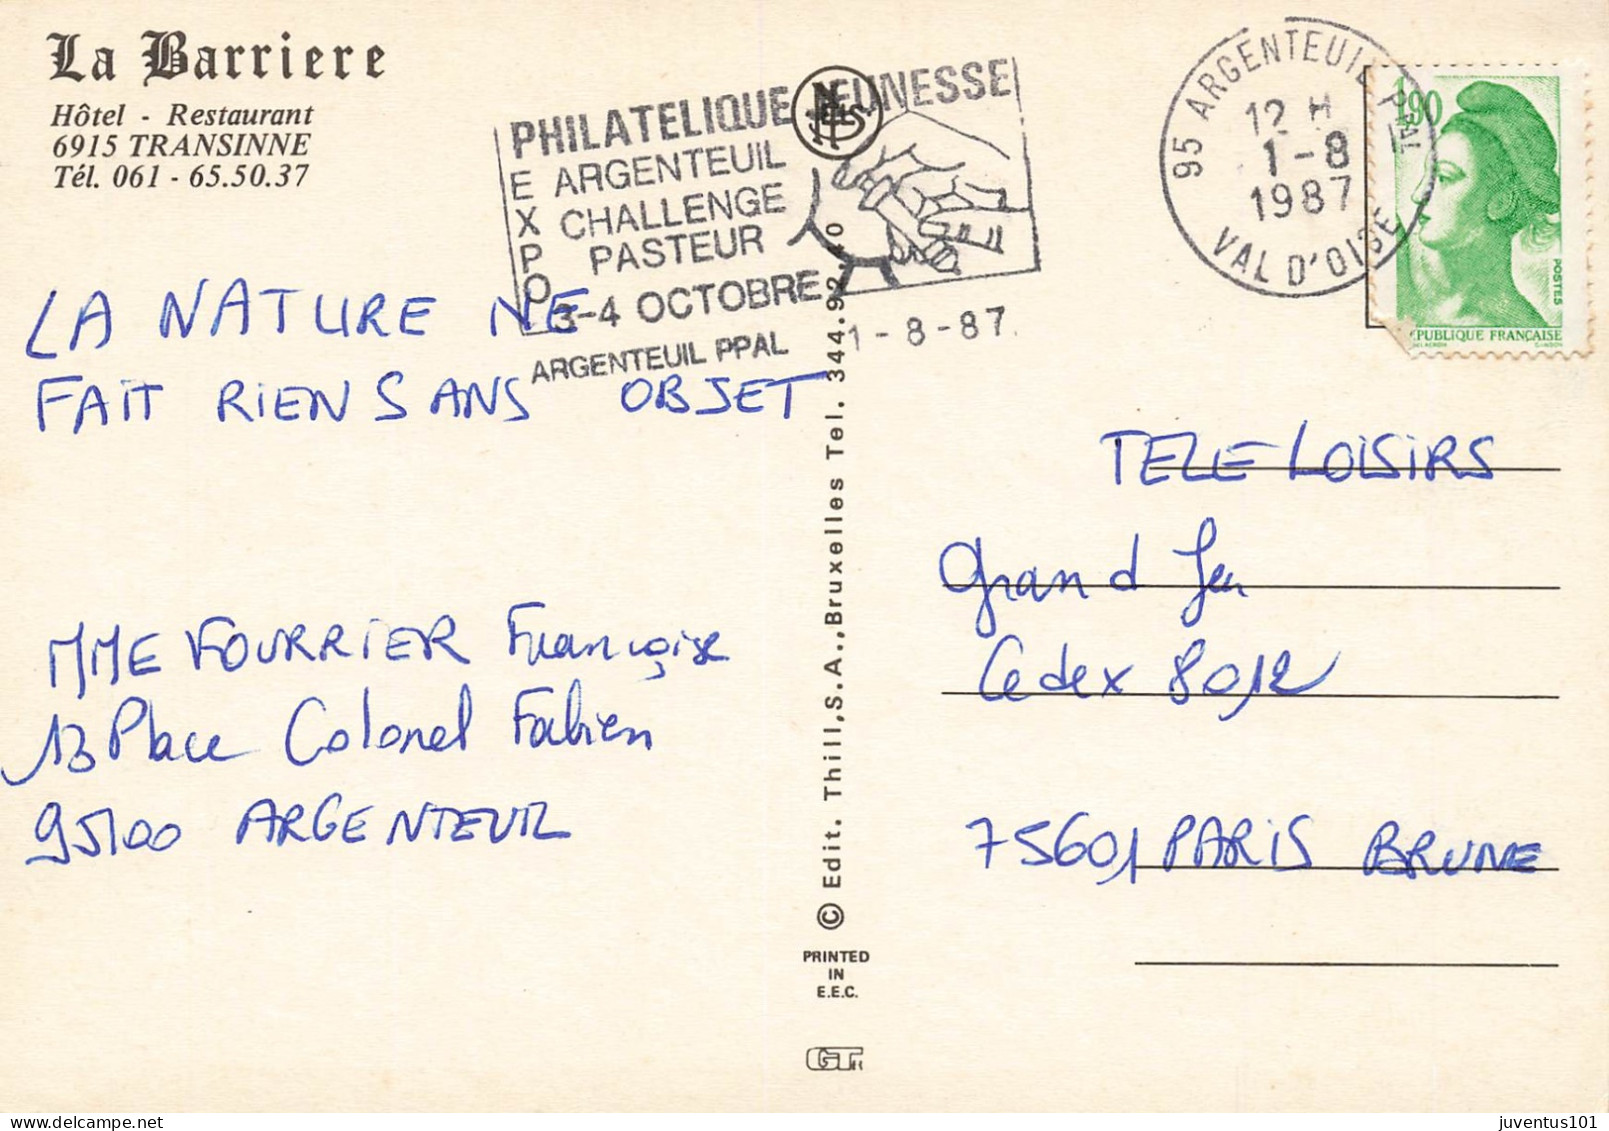 La Barriere
Hôtel - Restaurant
6915 TRANSINNE
Tél. 061 - 65.50.37
PHILATELIQUE JEUNESSE
EXPO
ARGENTEUIL
CHALLENGE
PASTEUR
3-4 OCTOBRE
ARGENTEUIL PPAL 1-8-87
95 ARGENTEUIL PPAL
12 H
1-8
1987
VAL D'OISE
1,90
POSTES
RÉPUBLIQUE FRANÇAISE
LA NATURE NE
FAIT RIEN SANS OBJET
MME FOURRIER Françoise
13 Place Colonel Fabien
95100 ARGENTEUIL
TELE LOISIRS
Grand Jeu
Cedex 8012
75601 PARIS BRUNE
© Edit. Thill, S.A., Bruxelles Tel. 344.92.10
PRINTED
IN
E.E.C.
GT
juventus101